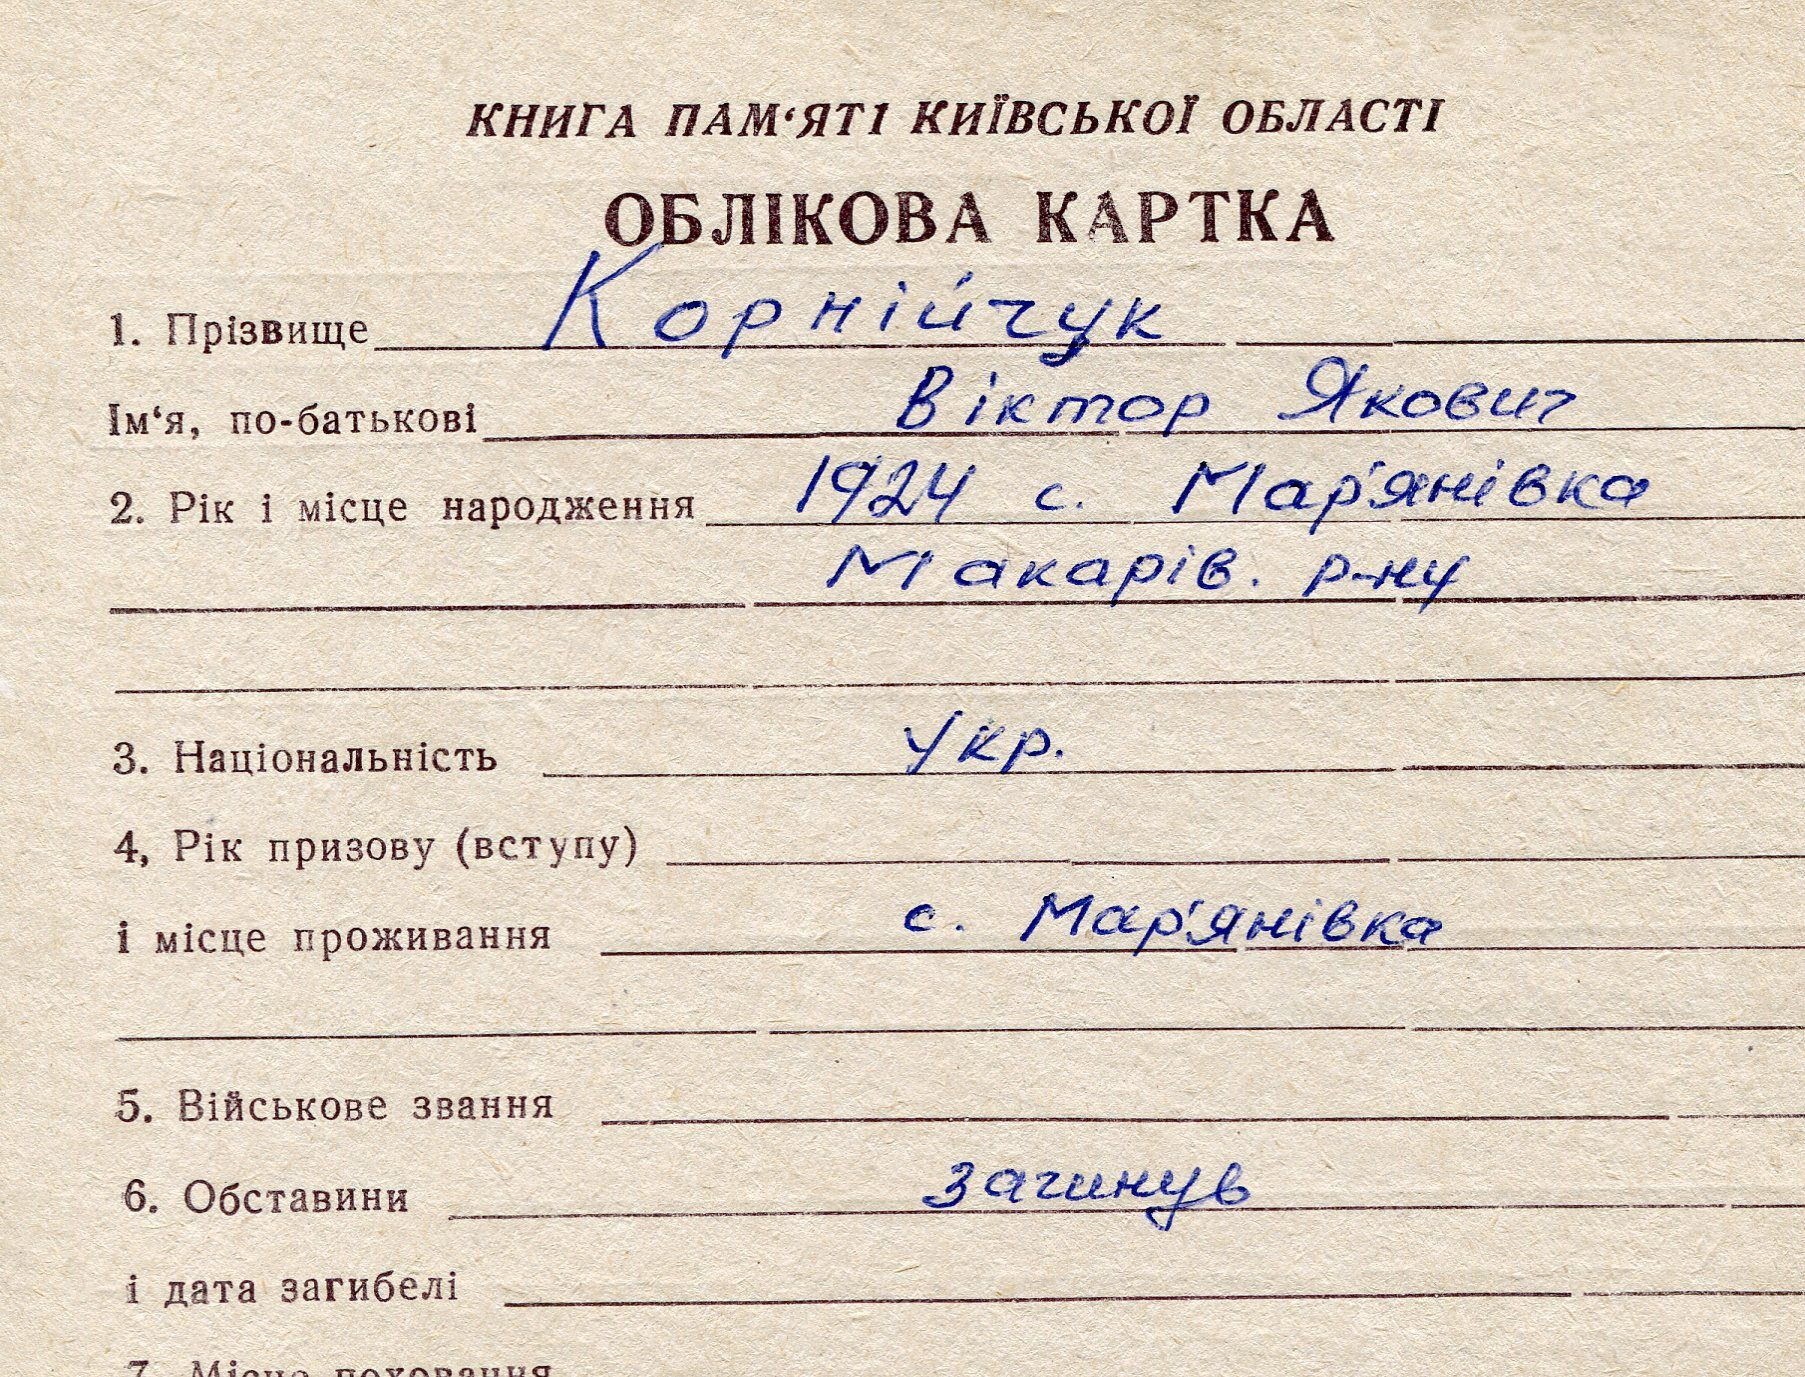 КНИГА ПАМ‘ЯТІ КИЇВСЬКОЇ ОБЛАСТІ
ОБЛІКОВА КАРТКА
1. Прізвище Корнійчук
Ім‘я, по-батькові Віктор Якович
2. Рік і місце народження 1924 с. Мар'янівка
Макарів. р-ну
3. Національність Укр.
4, Рік призову (вступу)
і місце проживання с. Мар'янівка
5. Військове звання
6. Обставини загинув
і дата загибелі
7. Місце поховання